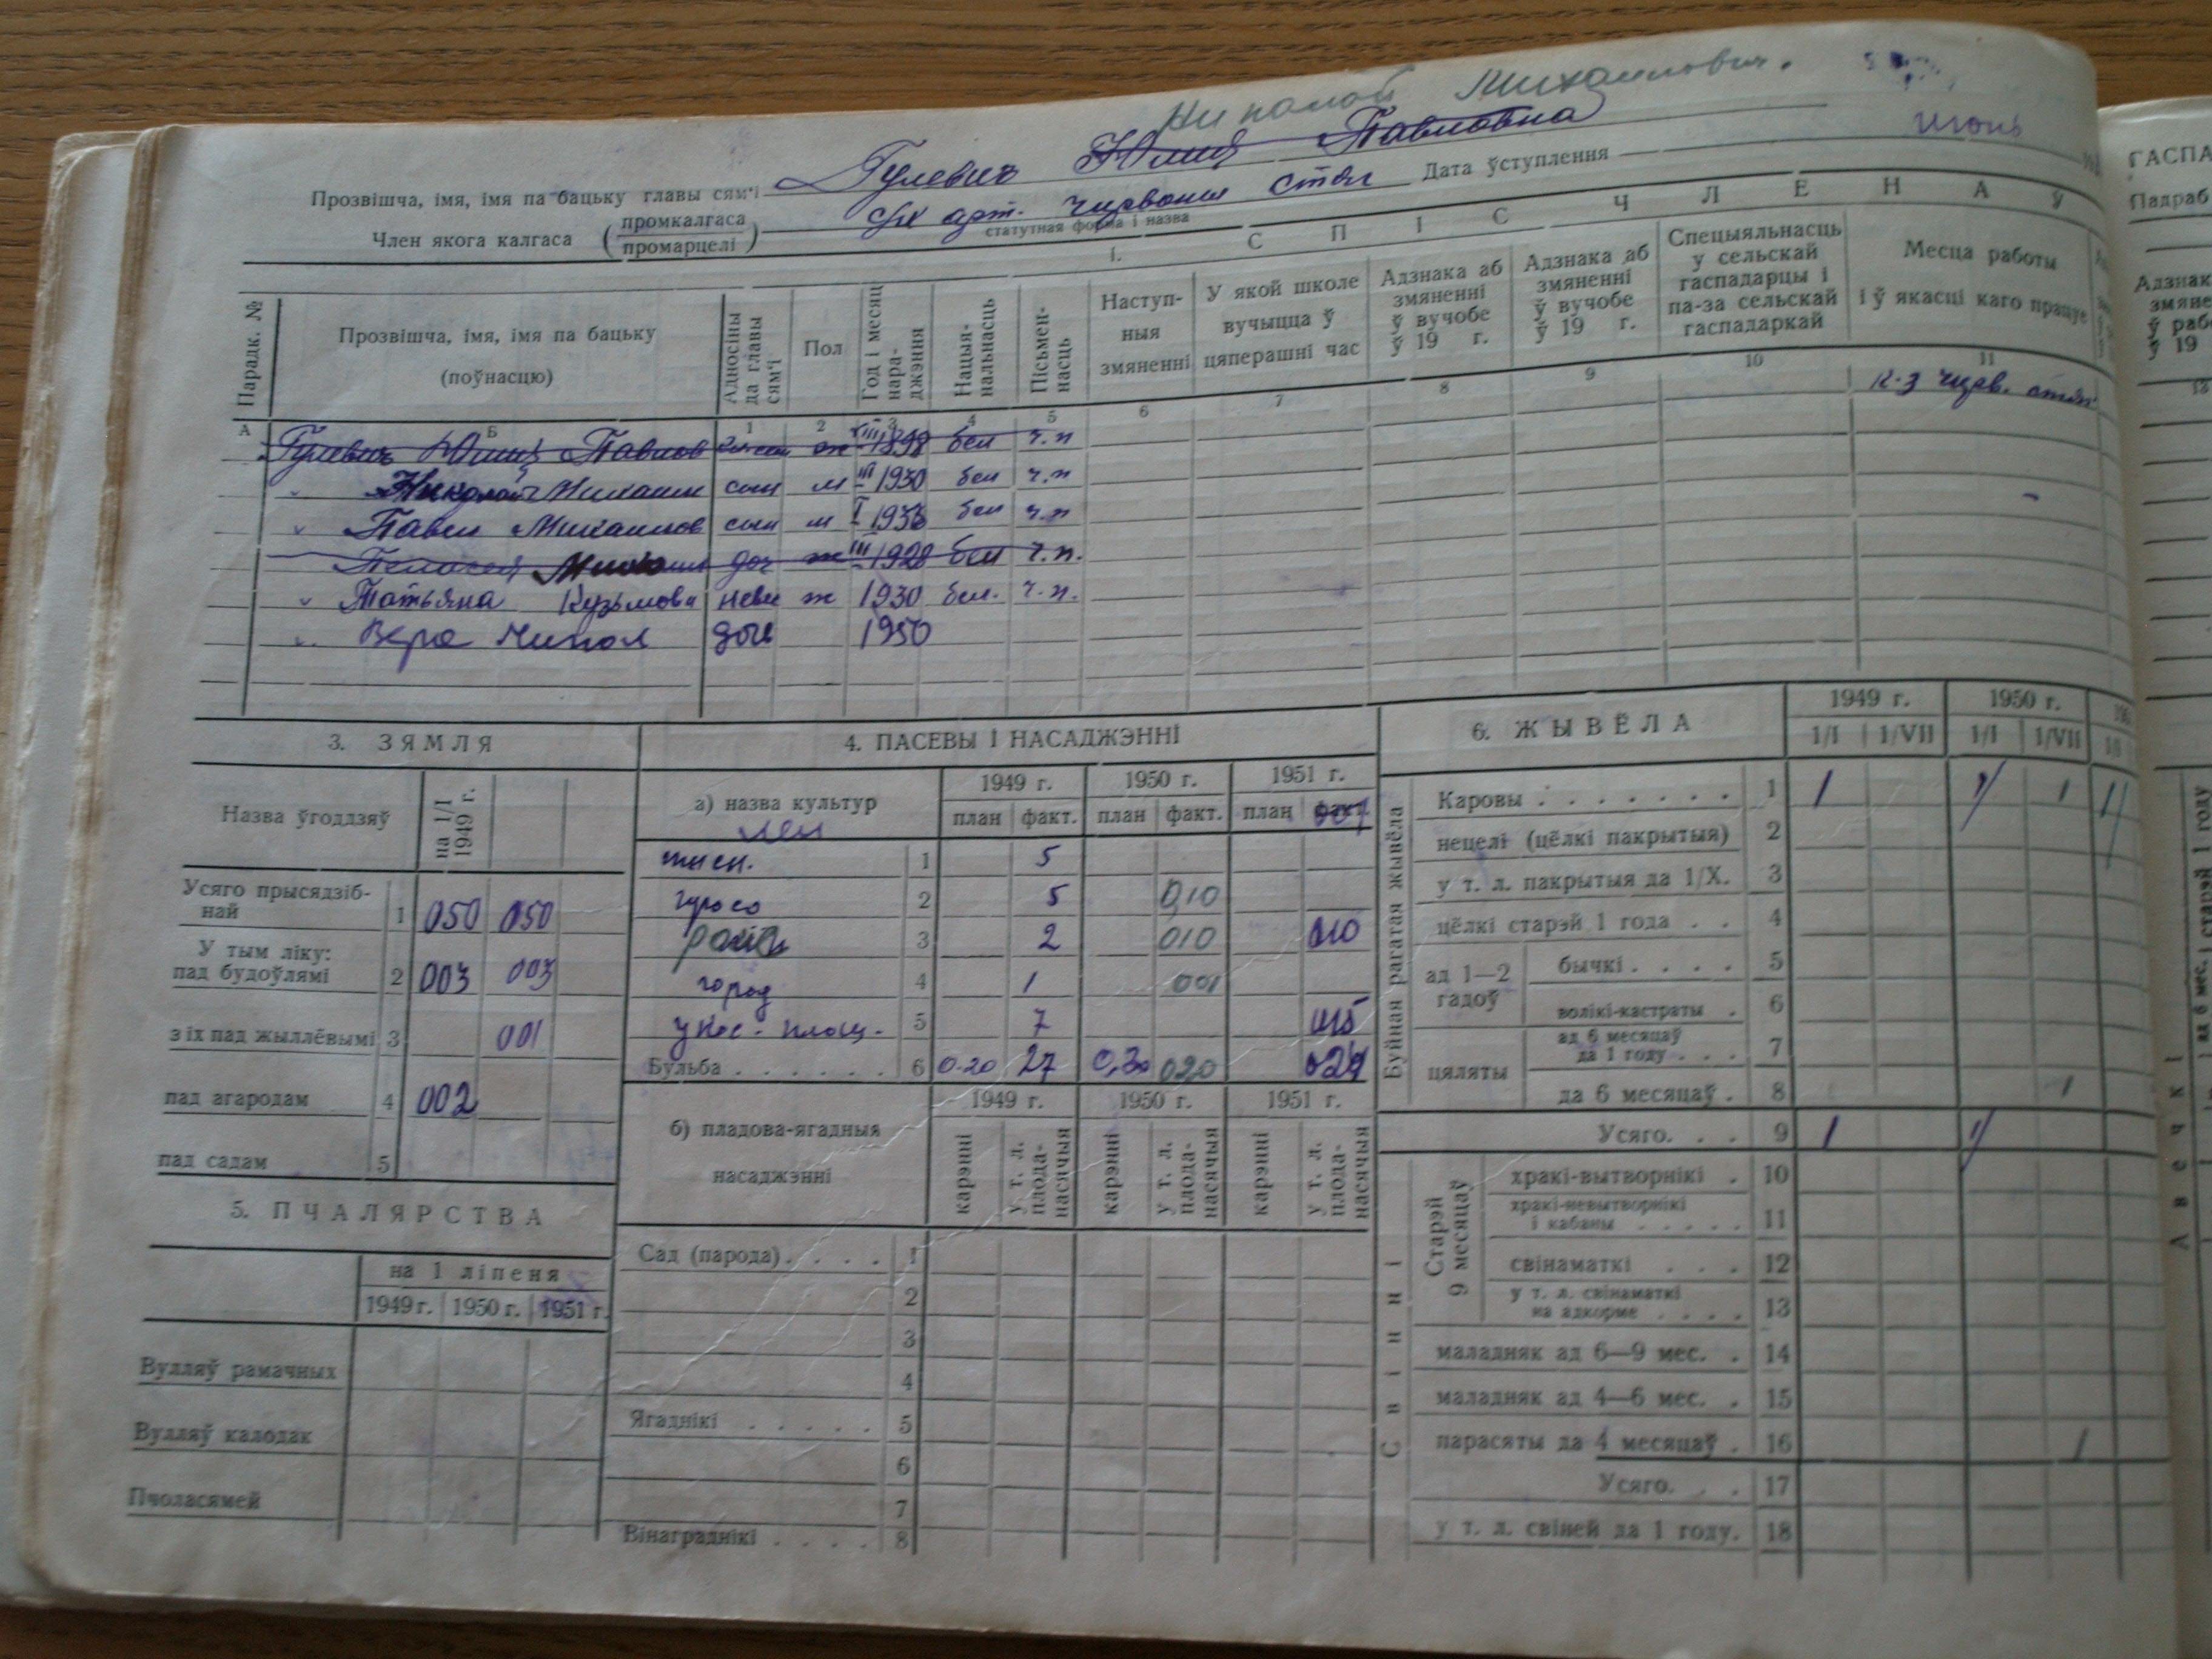 Николай Михайлович.
Июнь
Прозвішча, імя, імя па бацьку главы сям'і Гулевич Юлия Павловна
Член якога калгаса (промкалгаса промарцелі) с/х арт. Чырвоны стяг Дата ўступлення
статутная форма і назва
1. С П І С Ч Л Е Н А Ў
Парадк. № | Прозвішча, імя, імя па бацьку (поўнасцю) | Адносіны да главы сям'і | Пол | Год і месяц нараджэння | Нацыянальнасць | Пісьменнасць | Наступныя змяненні | У якой школе вучыцца ў цяперашні час | Адзнака аб змяненні ў вучобе ў 19 г. | Адзнака аб змяненні ў вучобе ў 19 г. | Спецыяльнасць у сельскай гаспадарцы і па-за сельскай гаспадаркай | Месца работы і ў якасці каго працуе
А Б 1 2 3 4 5 6 7 8 9 10 11
Гулевич Юлия Павлов ж 1898 бел ч.п К-з Чырв. стяг
" Николай Михаил сын м III 1930 бел ч.п
" Павел Михайлов сын м I 1933 бел ч.п
Михаил доч ж III 1928 бел ч.п.
" Татьяна Кузьмовн неве ж 1930 бел. ч.п.
" Вера Никол дочь 1950
3. ЗЯМЛЯ
Назва ўгоддзяў | на 1/I 1949 г.
Усяго прысядзібнай 1 050 050
У тым ліку:
пад будоўлямі 2 003 003
з іх пад жыллёвымі 3 001
пад агародам 4 002
пад садам 5
5. ПЧАЛЯРСТВА
на 1 ліпеня
1949 г. 1950 г. 1951 г.
Вулляў рамачных
Вулляў калодак
Пчоласямей
4. ПАСЕВЫ І НАСАДЖЭННІ
а) назва культур | 1949 г. | 1950 г. | 1951 г.
план факт. план факт. план факт.
лен 001
пшен. 1 5
2 5 0,10
3 2 010 010
город 4 1 001
укос. площ. 5 7 015
Бульба 6 0.20 27 0,20 020 024
б) пладова-ягадныя насаджэнні | 1949 г. | 1950 г. | 1951 г.
карэнні | у т. л. пладанасячыя | карэнні | у т. л. пладанасячыя | карэнні | у т. л. пладанасячыя
Сад (парода) 1
2
3
4
Ягаднікі 5
6
7
Вінаграднікі 8
6. ЖЫВЁЛА | 1949 г. | 1950 г.
1/I 1/VII 1/I 1/VII
Буйная рагатая жывёла
Каровы 1 1 1 1
нецелі (цёлкі пакрытыя) 2
у т. л. пакрытыя да 1/X. 3
цёлкі старэй 1 года 4
ад 1—2 гадоў
бычкі 5
волікі-кастраты 6
цяляты
ад 6 месяцаў да 1 году 7
да 6 месяцаў 8 1
Усяго 9 1 1
Свінні
Старэй 9 месяцаў
хракі-вытворнікі 10
хракі-невытворнікі і кабаны 11
свінаматкі 12
у т. л. свінаматкі на адкорме 13
маладняк ад 6—9 мес. 14
маладняк ад 4—6 мес. 15
парасяты да 4 месяцаў 16 1
Усяго 17
у т. л. свіней да 1 году. 18
ГАСПА
Падраб
Адзнак
змяне
ў рабо
ў 19
Авечкі